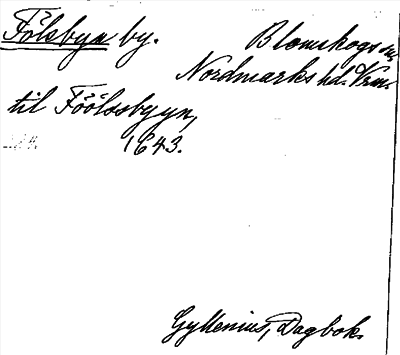 Fölsbyn by.
Blomskogs sn,
Nordmarks hd. Vrm.
til Föölssbyyn,
1643.
Gyllenius, Dagbok.